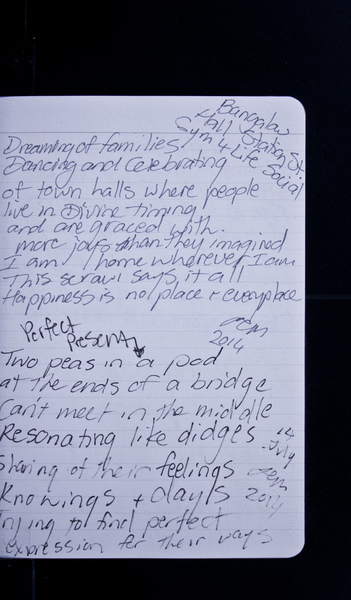 Bangalow
Hall Station St.
Gym 4 Life Social
Dreaming of families
Dancing and Celebrating
of town halls where people
live in Divine timing
and are graced with.
more joys than they imagined
I am home wherever I am
This scrawl says it all
Happiness is no place + everyplace
2014
Perfect
Present
Two peas in a pod
at the ends of a bridge
Can't meet in the middle
Resonating like didges
14
July
Sharing of their feelings
Knowings + days
2014
Trying to find perfect
expression for their ways